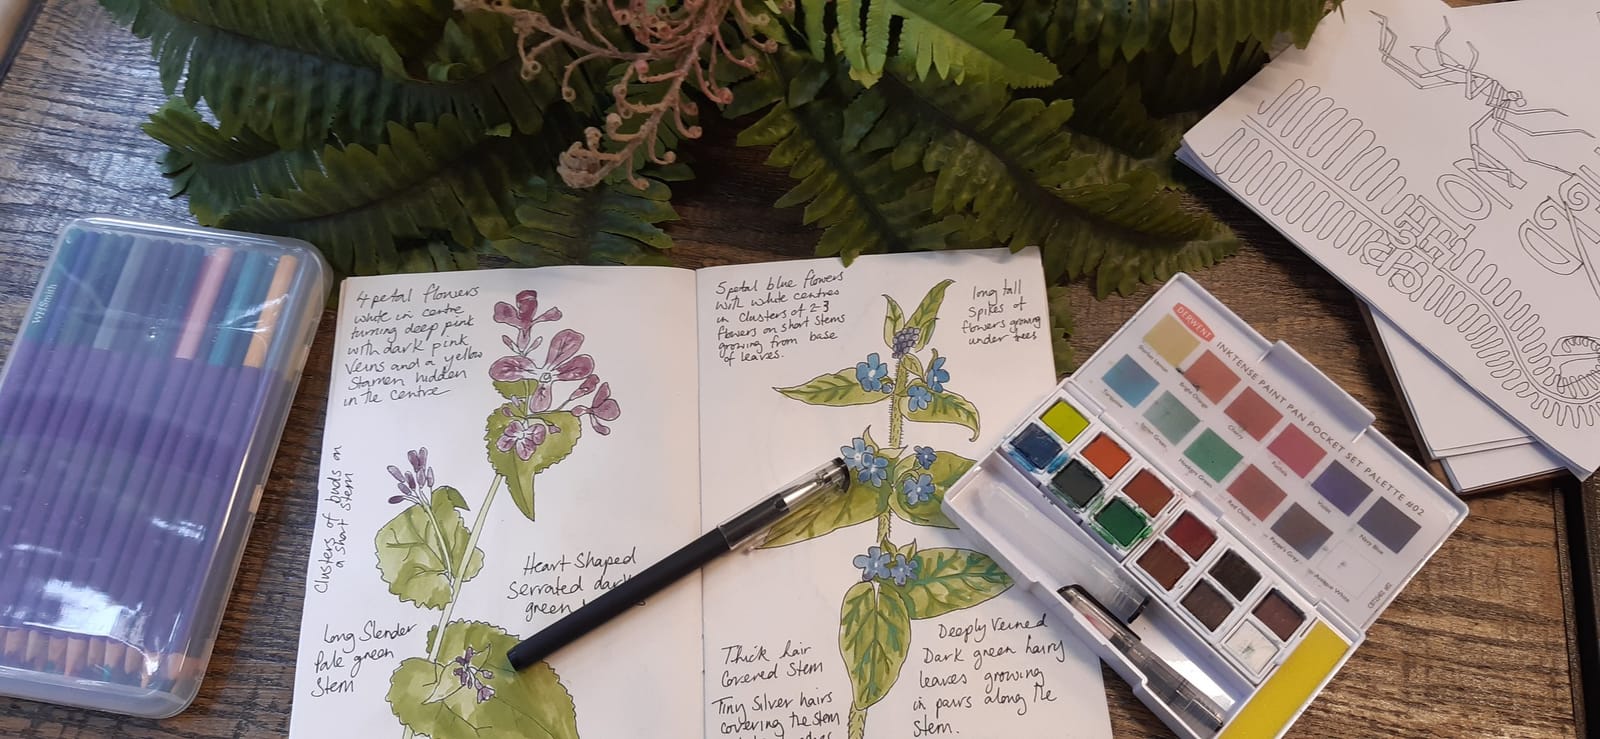 WHSmith
4 petal flowers
white in centre
turning deep pink
with dark pink
veins and a yellow
stamen hidden
in the centre
Clusters of buds on
a short stem
Heart Shaped
Serrated dark
green
Long Slender
Pale green
Stem
5 petal blue flowers
with white centres
in clusters of 2-3
flowers on short stems
growing from base
of leaves.
long tall
Spikes of
flowers growing
under trees
Thick hair
covered Stem
Tiny Silver hairs
covering the stem
Deeply Veined
Dark green hairy
leaves growing
in pairs along the
Stem.
DERWENT
INKTENSE PAINT PAN POCKET SET PALETTE #02
Bright Orange
Cherry
Fuchsia
Violet
Navy Blue
Turquoise
Green
Green
Red Oxide
Payne's Grey
Antique White